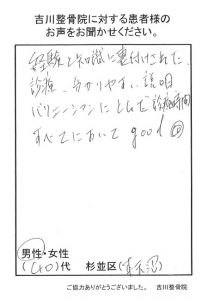 吉川整骨院に対する患者様の
お声をお聞かせください。
経験と知識に裏付けされた
診療、分かりやすい説明
バリエーションにとんだ診療時間
すべてにおいて good
男性・女性
(40)代 杉並区(
ご協力ありがとうございました。 吉川整骨院